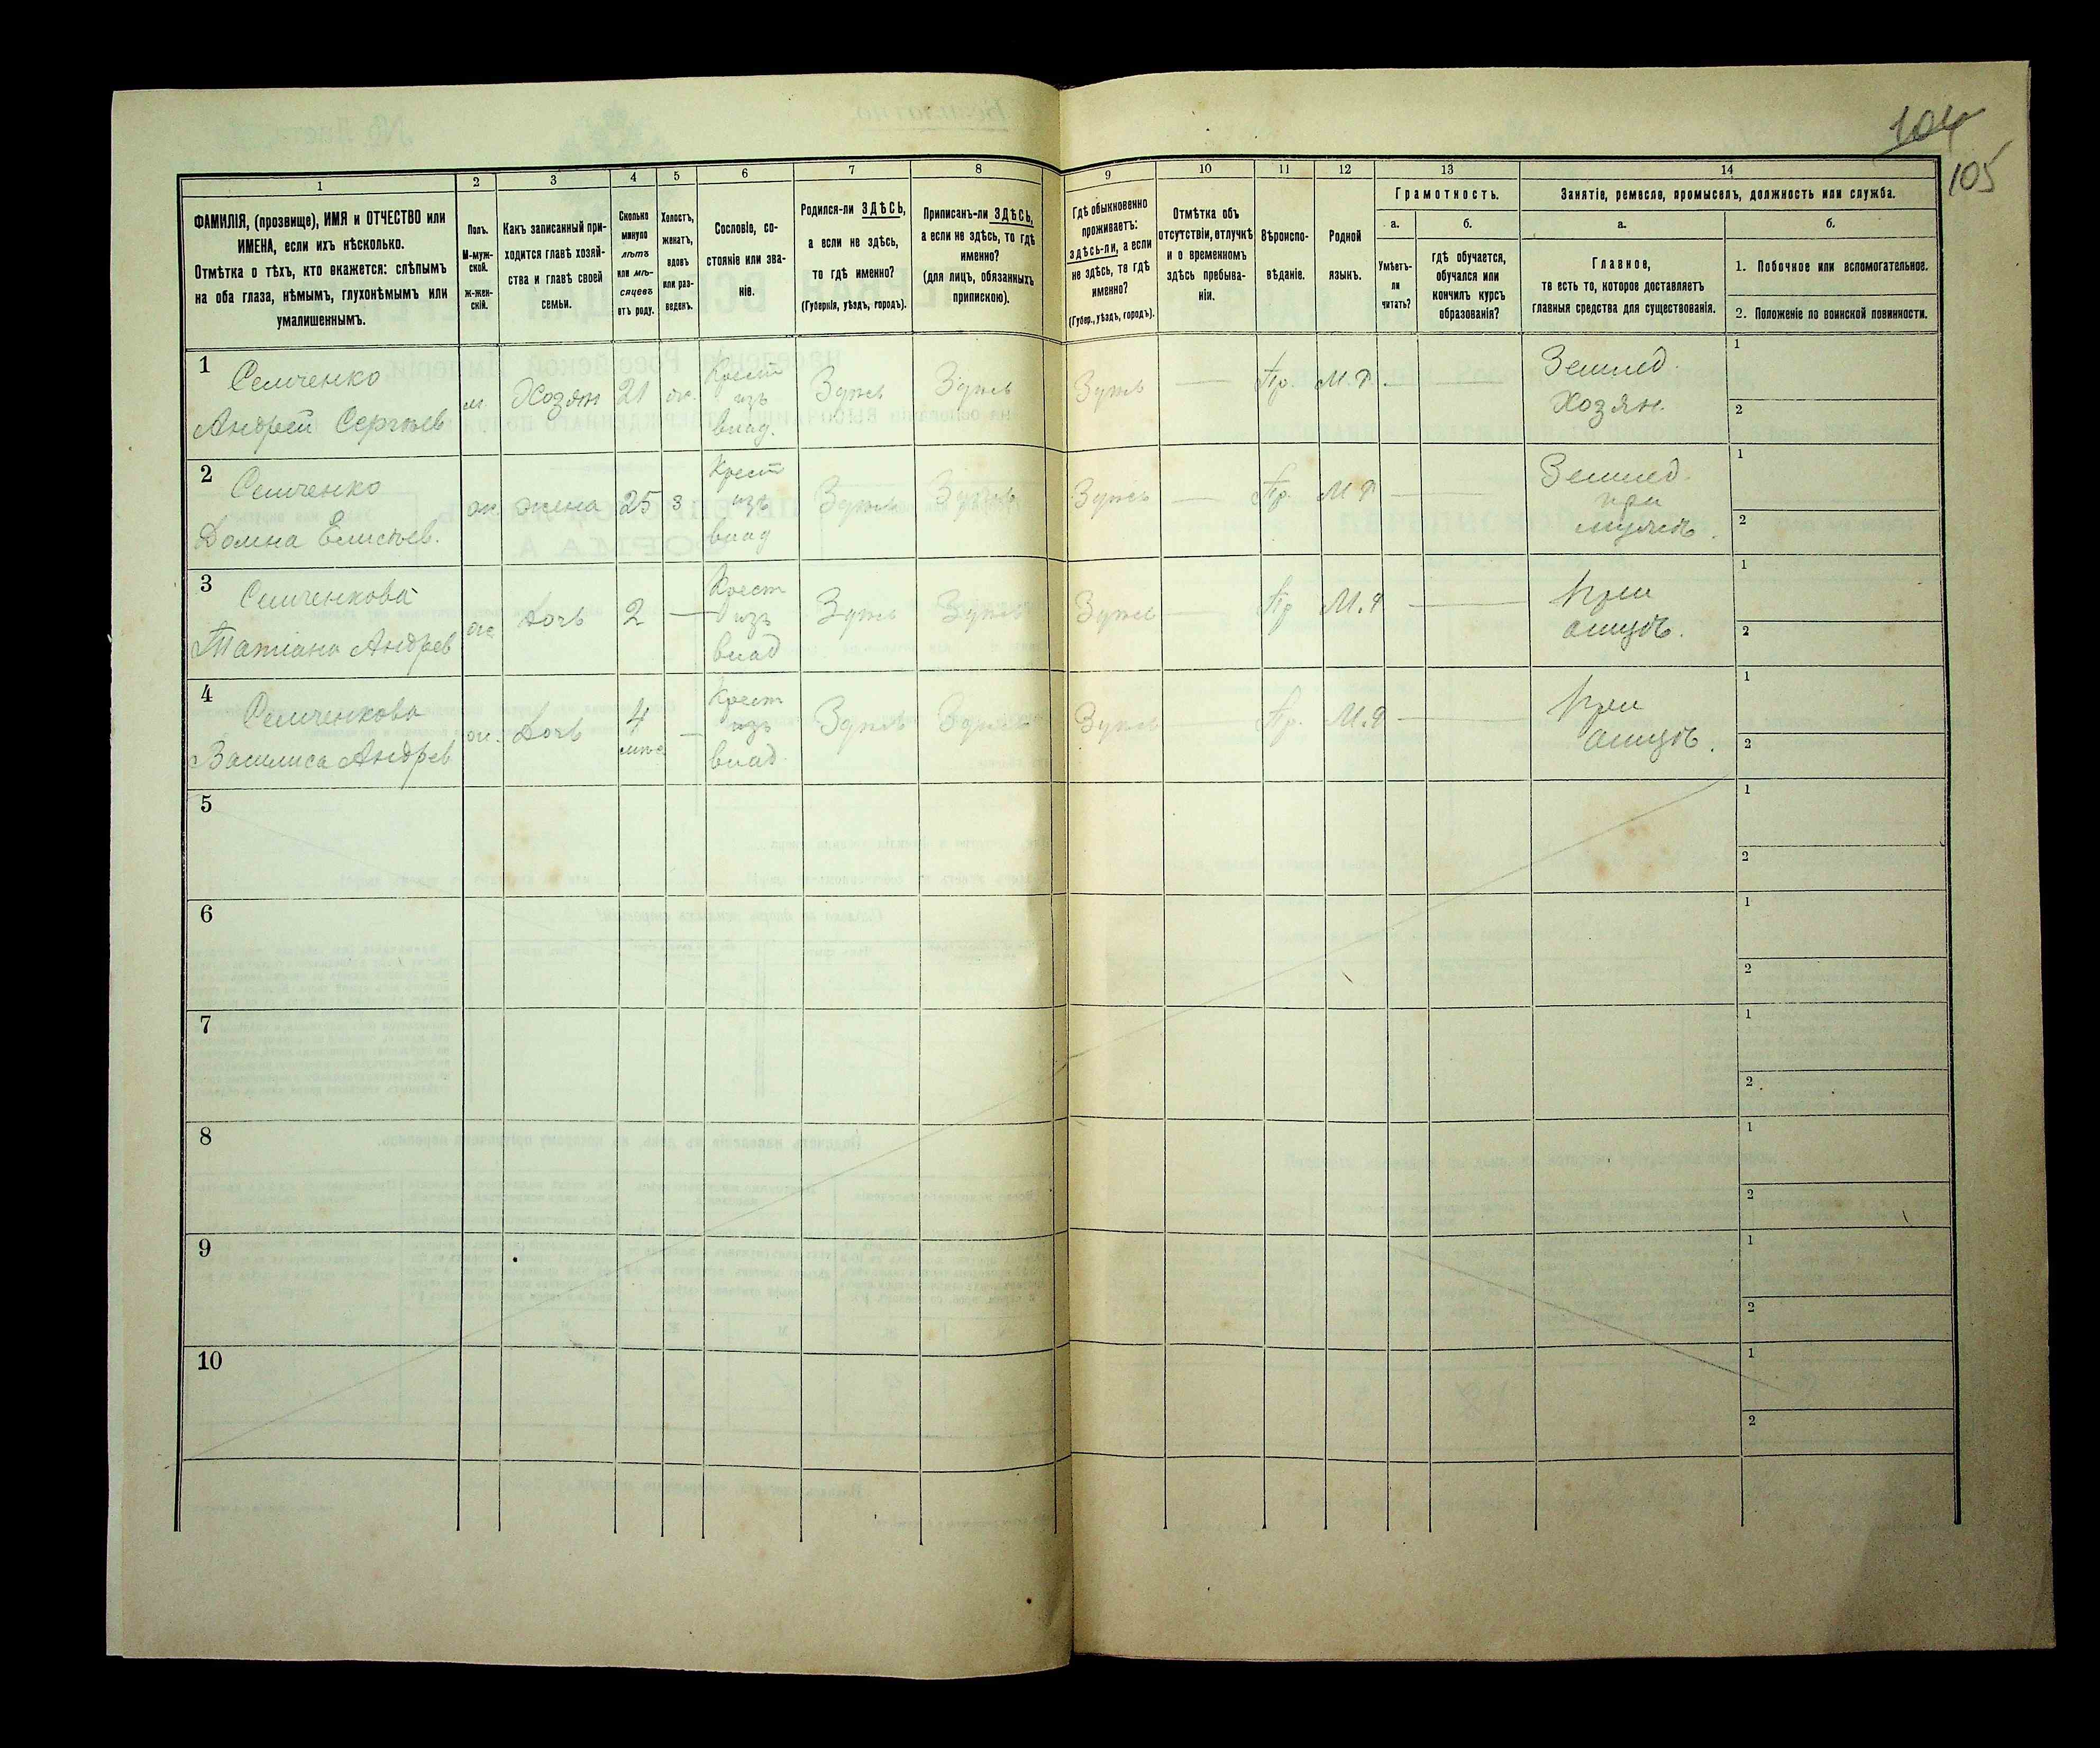 104
105
1
2
3
4
5
6
7
8
9
10
11
12
13
14
ФАМИЛІЯ, (прозвище), ИМЯ и ОТЧЕСТВО или
ИМЕНА, если ихъ нѣсколько.
Отмѣтка о тѣхъ, кто окажется: слѣпымъ
на оба глаза, нѣмымъ, глухонѣмымъ или
умалишеннымъ.
Полъ.
М-муж-
ской.
ж-жен-
скій.
Какъ записанный при-
ходится главѣ хозяй-
ства и главѣ своей
семьи.
Сколько
минуло
лѣтъ
или мѣ-
сяцевъ
отъ роду.
Холостъ,
женатъ,
вдовъ
или раз-
веденъ.
Сословіе, со-
стояніе или зва-
ніе.
Родился-ли ЗДѢСЬ,
а если не здѣсь,
то гдѣ именно?
(Губернія, уѣздъ, городъ).
Приписанъ-ли ЗДѢСЬ,
а если не здѣсь, то гдѣ
именно?
(для лицъ, обязанныхъ
припискою).
Гдѣ обыкновенно
проживаетъ:
здѣсь-ли, а если
не здѣсь, то гдѣ
именно?
(Губер., уѣздъ, городъ).
Отмѣтка объ
отсутствіи, отлучкѣ
и о временномъ
здѣсь пребыва-
ніи.
Вѣроиспо-
вѣданіе.
Родной
языкъ.
Грамотность.
а.
Умѣетъ-
ли
читать?
б.
гдѣ обучается,
обучался или
кончилъ курсъ
образованія?
Занятіе, ремесло, промыселъ, должность или служба.
а.
Главное,
то есть то, которое доставляетъ
главныя средства для существованія.
б.
1. Побочное или вспомогательное.
2. Положеніе по воинской повинности.
1
Семченко
Андрей Сергѣев
м.
Хозян
21
ж.
Крест
изъ
влад.
Здѣсь
Здѣсь
Здѣсь
—
Пр.
М. Р.
—
Землед.
Хозян.
1
2
2
Семченко
Домна Елисѣев.
ж
жена
25
з
Крест
изъ
влад
Здѣсь
Здѣсь
Здѣсь
—
Пр.
М Р
—
Землед.
при
мужѣ.
1
2
3
Семченкова
Татіана Андрев
ж.
дочь
2
—
Крест
изъ
влад
Здѣсь
Здѣсь
Здѣсь
—
Пр
М. Р
—
при
отцѣ.
1
2
4
Семченкова
Василиса Андрев
ж.
дочь
4
мѣс
—
Крест
изъ
влад.
Здѣсь
Здѣсь
Здѣсь
—
Пр.
М. Р
—
при
отцѣ.
1
2
5
1
2
6
1
2
7
1
2
8
1
2
9
1
2
10
1
2